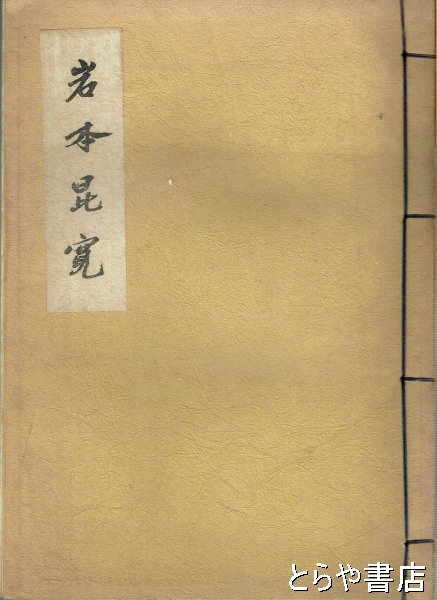 岩本昆寛
とらや書店